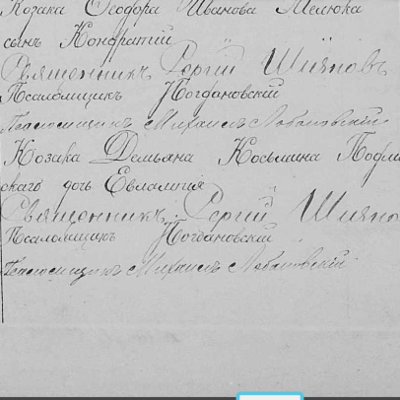 Козака Ѳеодора Иванова Мелюка
сынъ Кондратій
Священникъ Сергій Шіяновъ
Псаломщикъ Ногдановскій
Псаломщикъ Михаилъ Лобановскій
Козака Демьяна Косьмина
скаго дочь Евлампія
Священникъ Сергій
Псаломщикъ Ногдановскій
Псаломщикъ Михаилъ Лобановскій